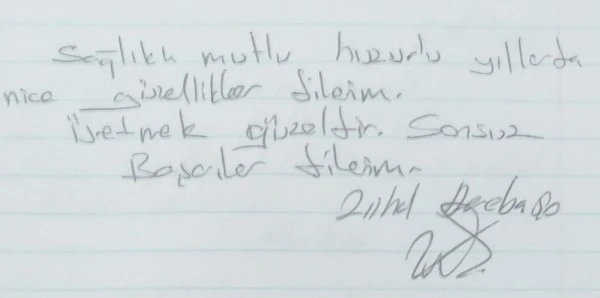 Sağlıklı mutlu huzurlu yıllarda
nice güzellikler dilerim.
Üretmek güzeldir. Sonsuz
Başarılar dilerim.